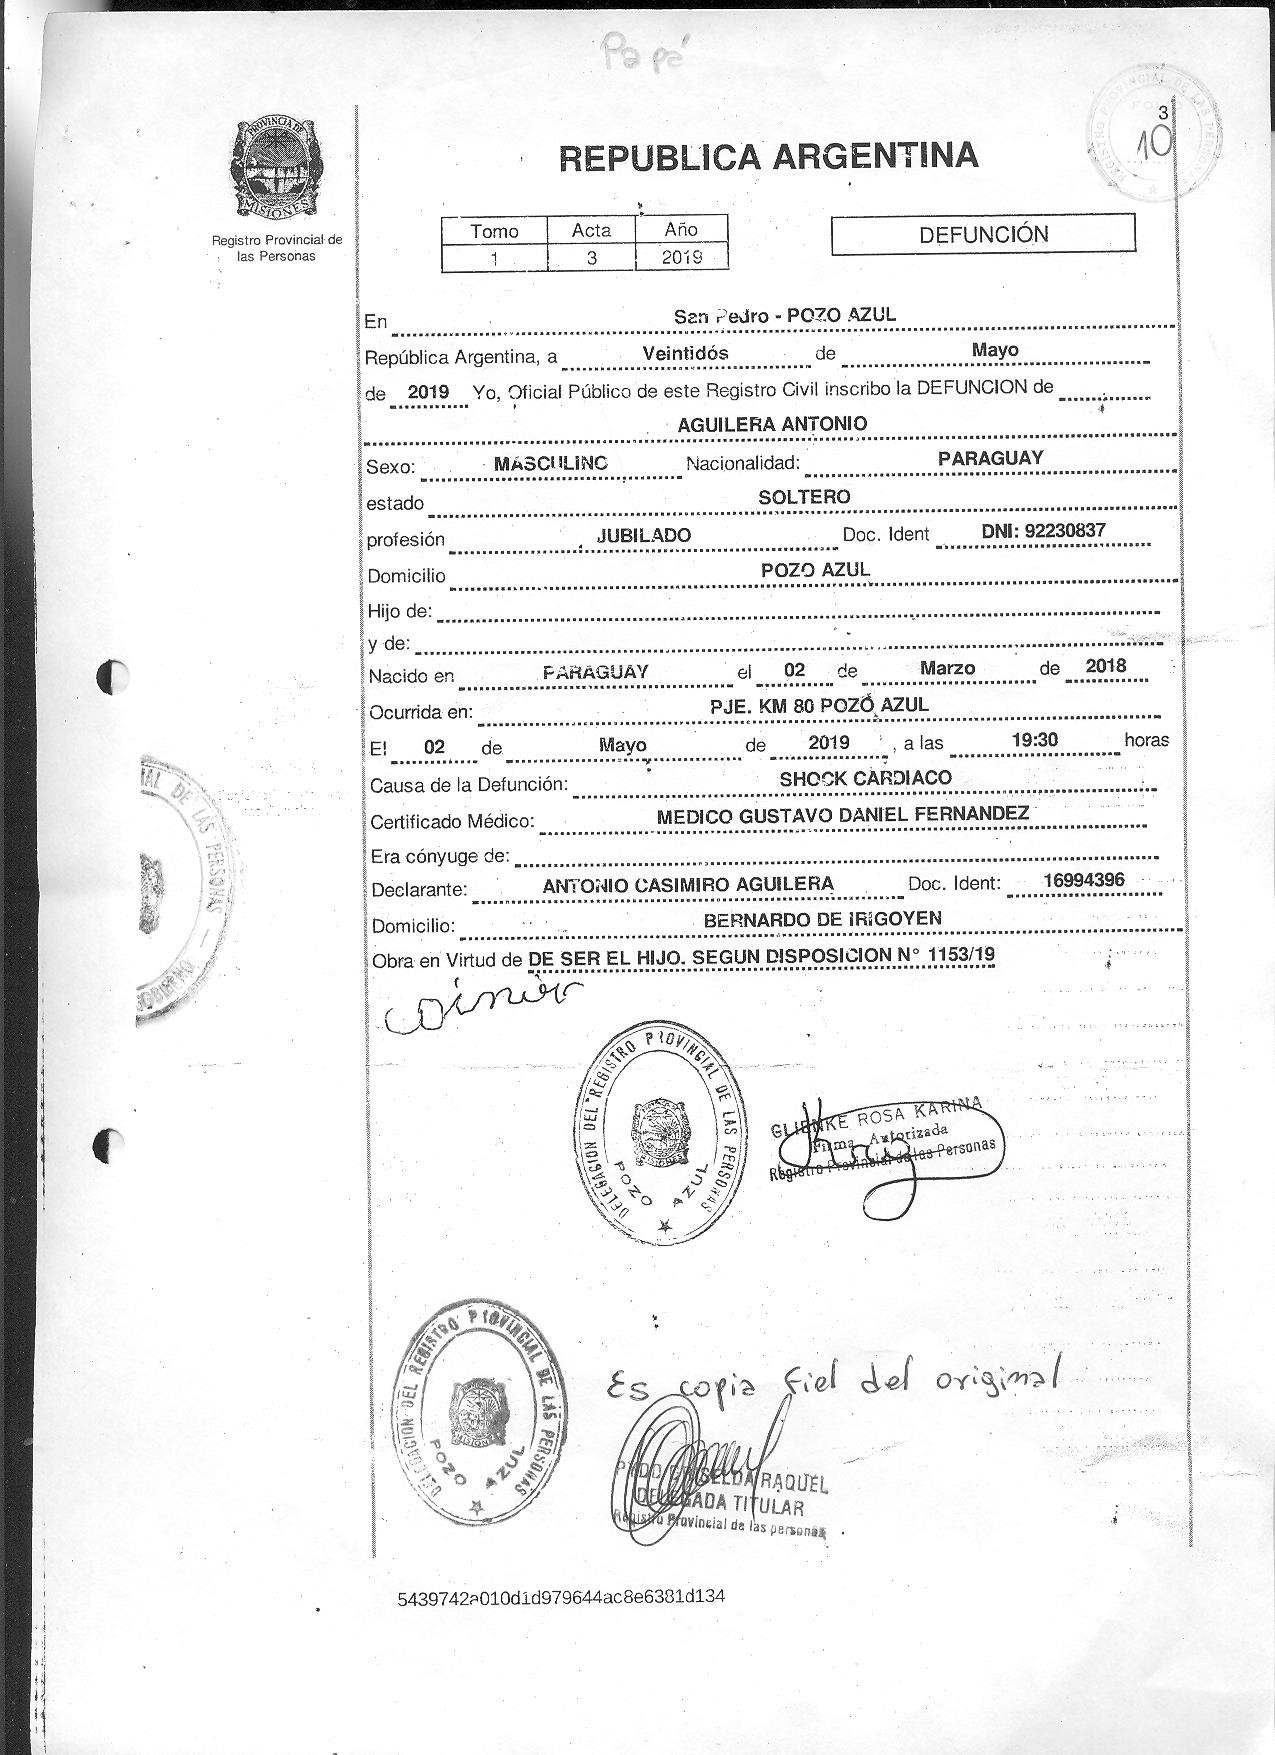 Papá
3
10
PROVINCIA DE
MISIONES
Registro Provincial de
las Personas
REPUBLICA ARGENTINA
Tomo Acta Año
1 3 2019
DEFUNCIÓN
En San Pedro - POZO AZUL
República Argentina, a Veintidós de Mayo
de 2019 Yo, Oficial Público de este Registro Civil inscribo la DEFUNCION de
AGUILERA ANTONIO
Sexo: MASCULINO Nacionalidad: PARAGUAY
estado SOLTERO
profesión JUBILADO Doc. Ident DNI: 92230837
Domicilio POZO AZUL
Hijo de:
y de:
Nacido en PARAGUAY el 02 de Marzo de 2018
Ocurrida en: PJE. KM 80 POZO AZUL
El 02 de Mayo de 2019 , a las 19:30 horas
Causa de la Defunción: SHOCK CARDIACO
Certificado Médico: MEDICO GUSTAVO DANIEL FERNANDEZ
Era cónyuge de:
Declarante: ANTONIO CASIMIRO AGUILERA Doc. Ident: 16994396
Domicilio: BERNARDO DE IRIGOYEN
Obra en Virtud de DE SER EL HIJO. SEGUN DISPOSICION N° 1153/19
DELEGACION DEL REGISTRO PROVINCIAL DE LAS PERSONAS
POZO AZUL
GLIENKE ROSA KARINA
Firma Autorizada
Registro Provincial de las Personas
DELEGACION DEL REGISTRO PROVINCIAL DE LAS PERSONAS
POZO AZUL
Es copia fiel del original
RAQUEL
DELEGADA TITULAR
Registro Provincial de las personas
5439742a010d1d979644ac8e6381d134